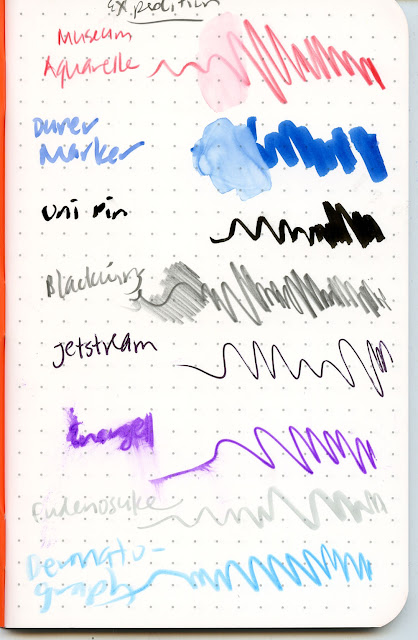 Expedition
Museum
Aquarelle
Durer
Marker
Uni-pin
Blackwing
Jetstream
Energel
Fudenosuke
Dermato-
graph